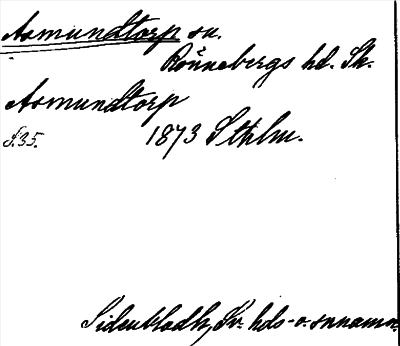 Asmundtorp sn.
Rönnebergs hd. Sk.
Asmundtorp
S. 35. 1873 Sthlm.
Sidenbladh, Sv. hds- o. snnamn.